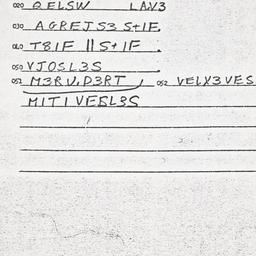 020 QELSW LAV3
030 AGREJS3 S+IF.
040 T8IF IIS+IF.
050 VJOSL3S
052 M3RU.D3RT, 052 VELX3VES
MITIVESL3S